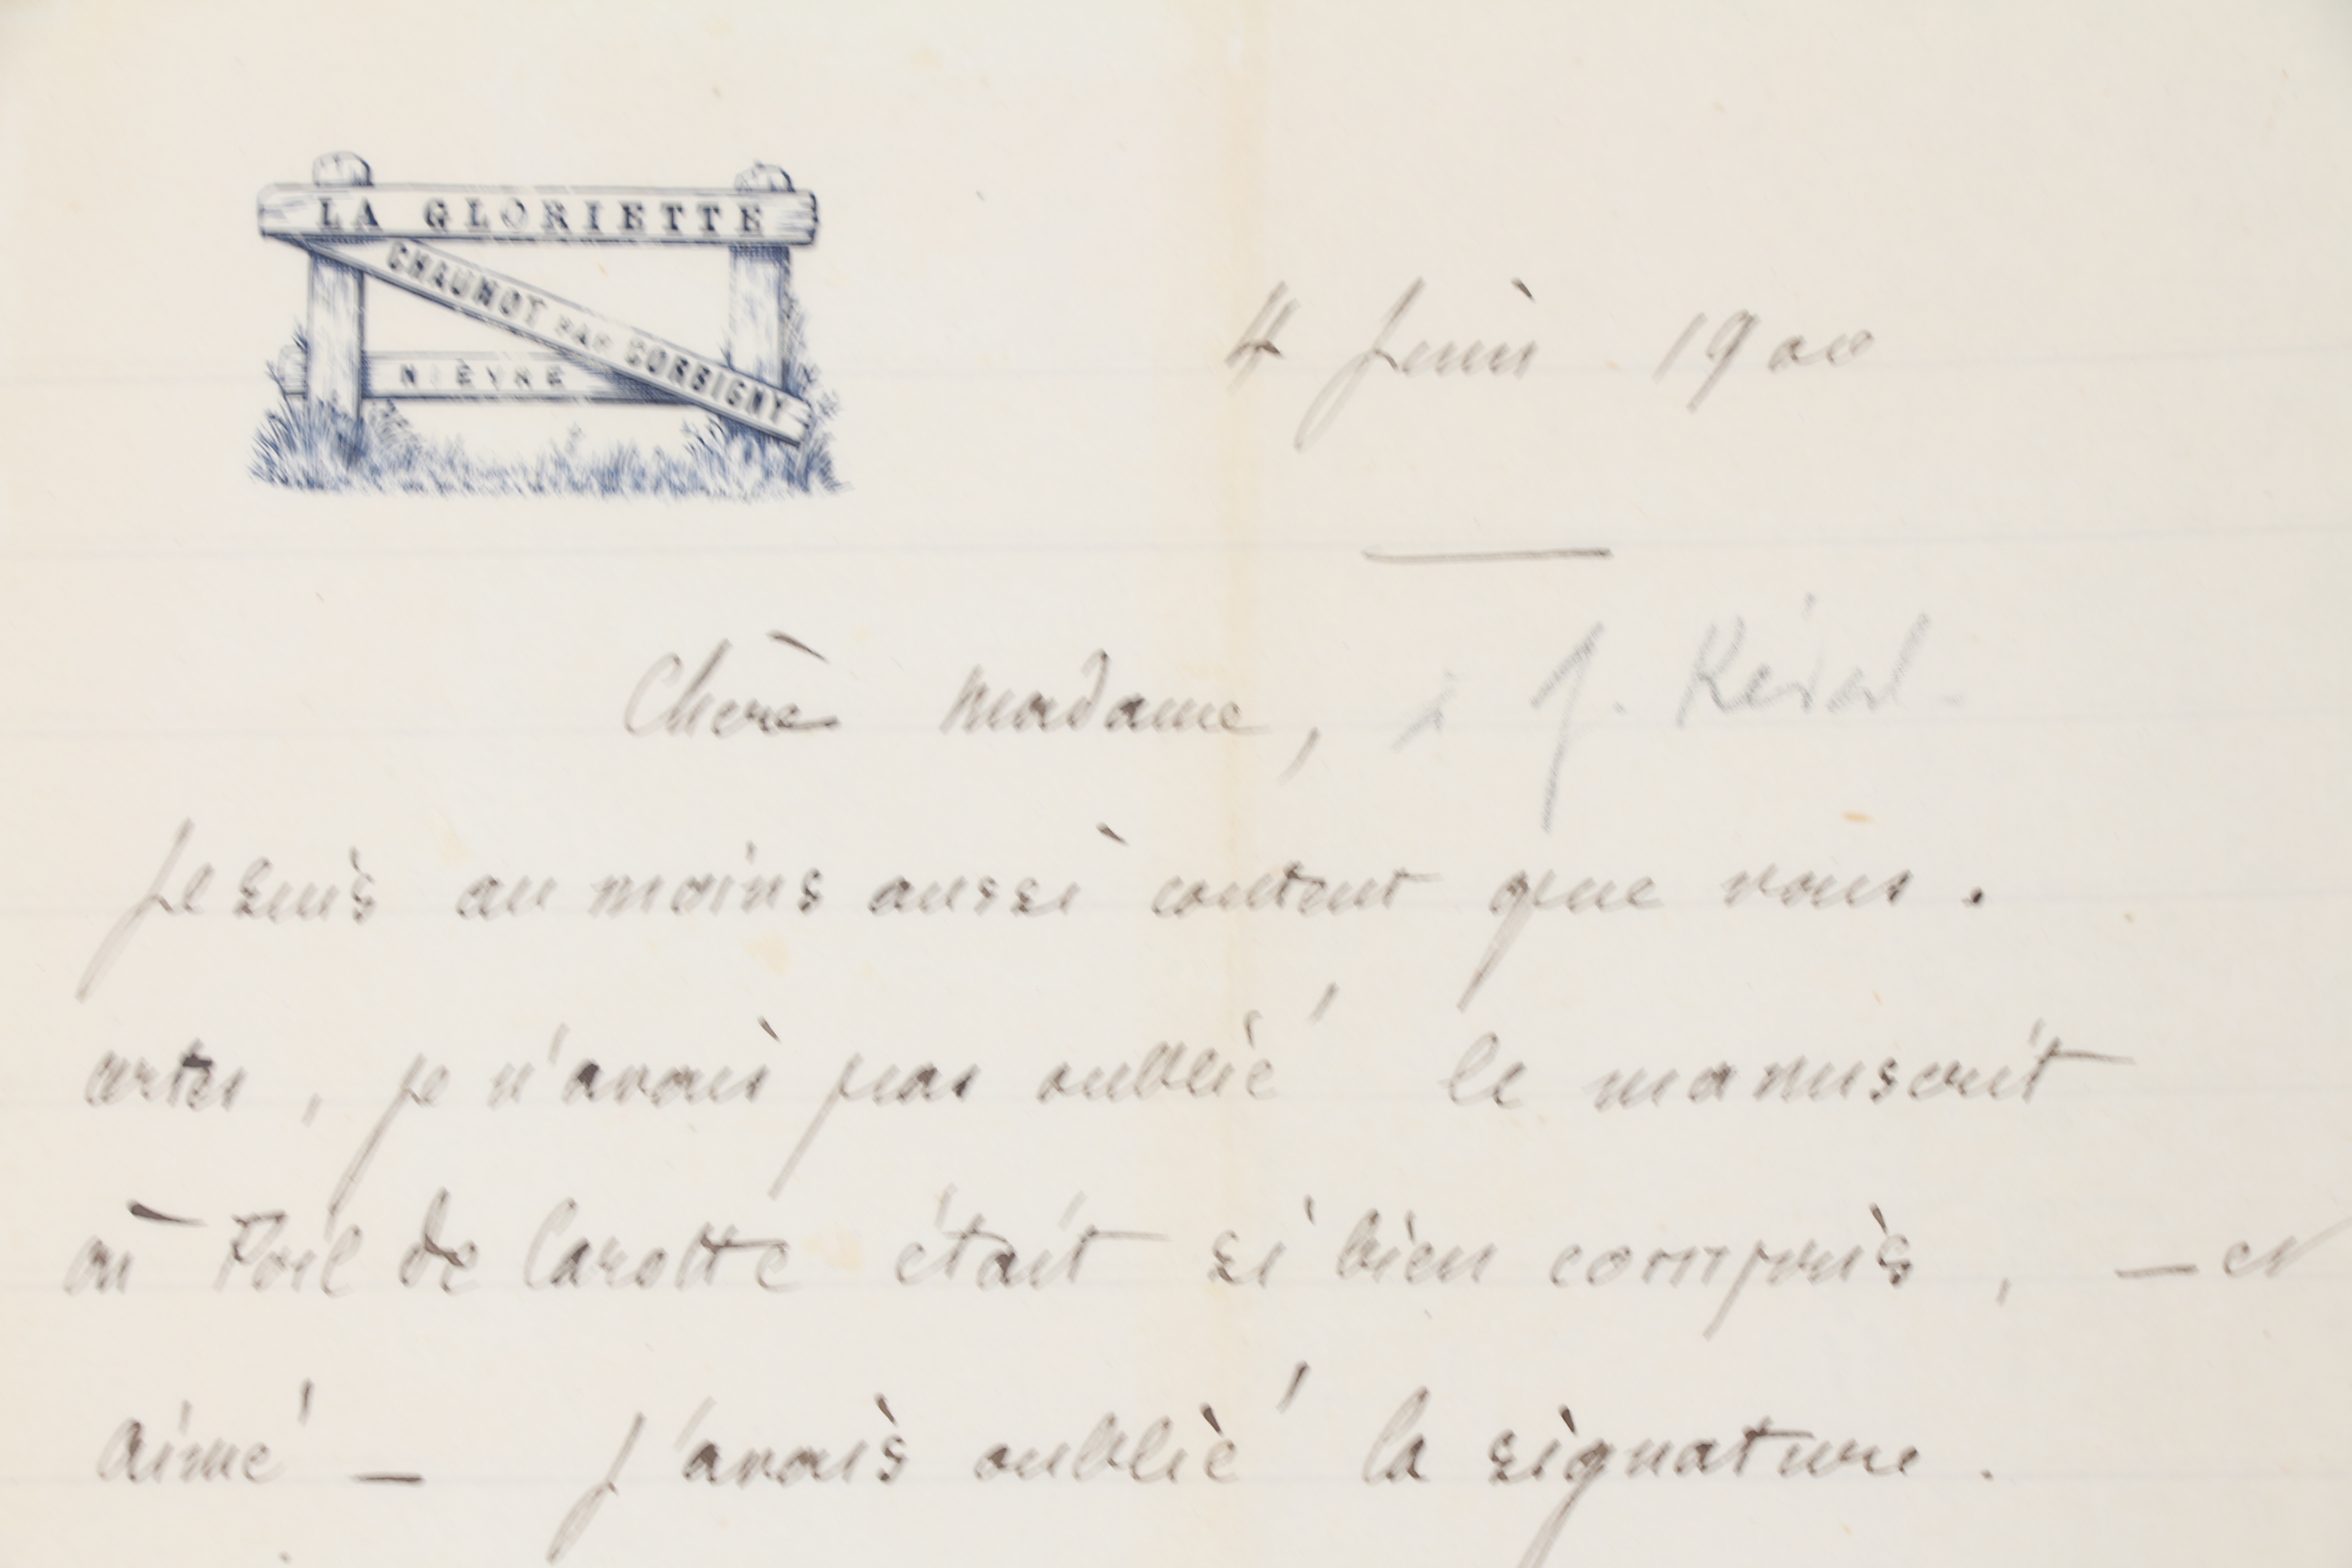 LA GLORIETTE
CHAUMOT PAR CORBIGNY
NIÈVRE
4 Juin 1900
Chère Madame, à G. Réval-
Je suis au moins aussi content que vous.
certes, je n'avais pas oublié le manuscrit
où Poil de Carotte était si bien compris, — et
aimé — j'avais oublié la signature.